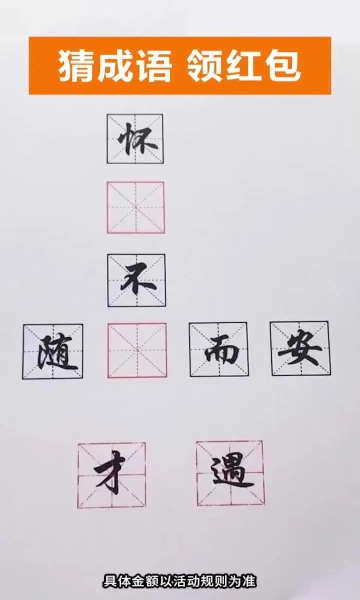 猜成语 领红包
怀
不
随 而 安
才 遇
具体金额以活动规则为准